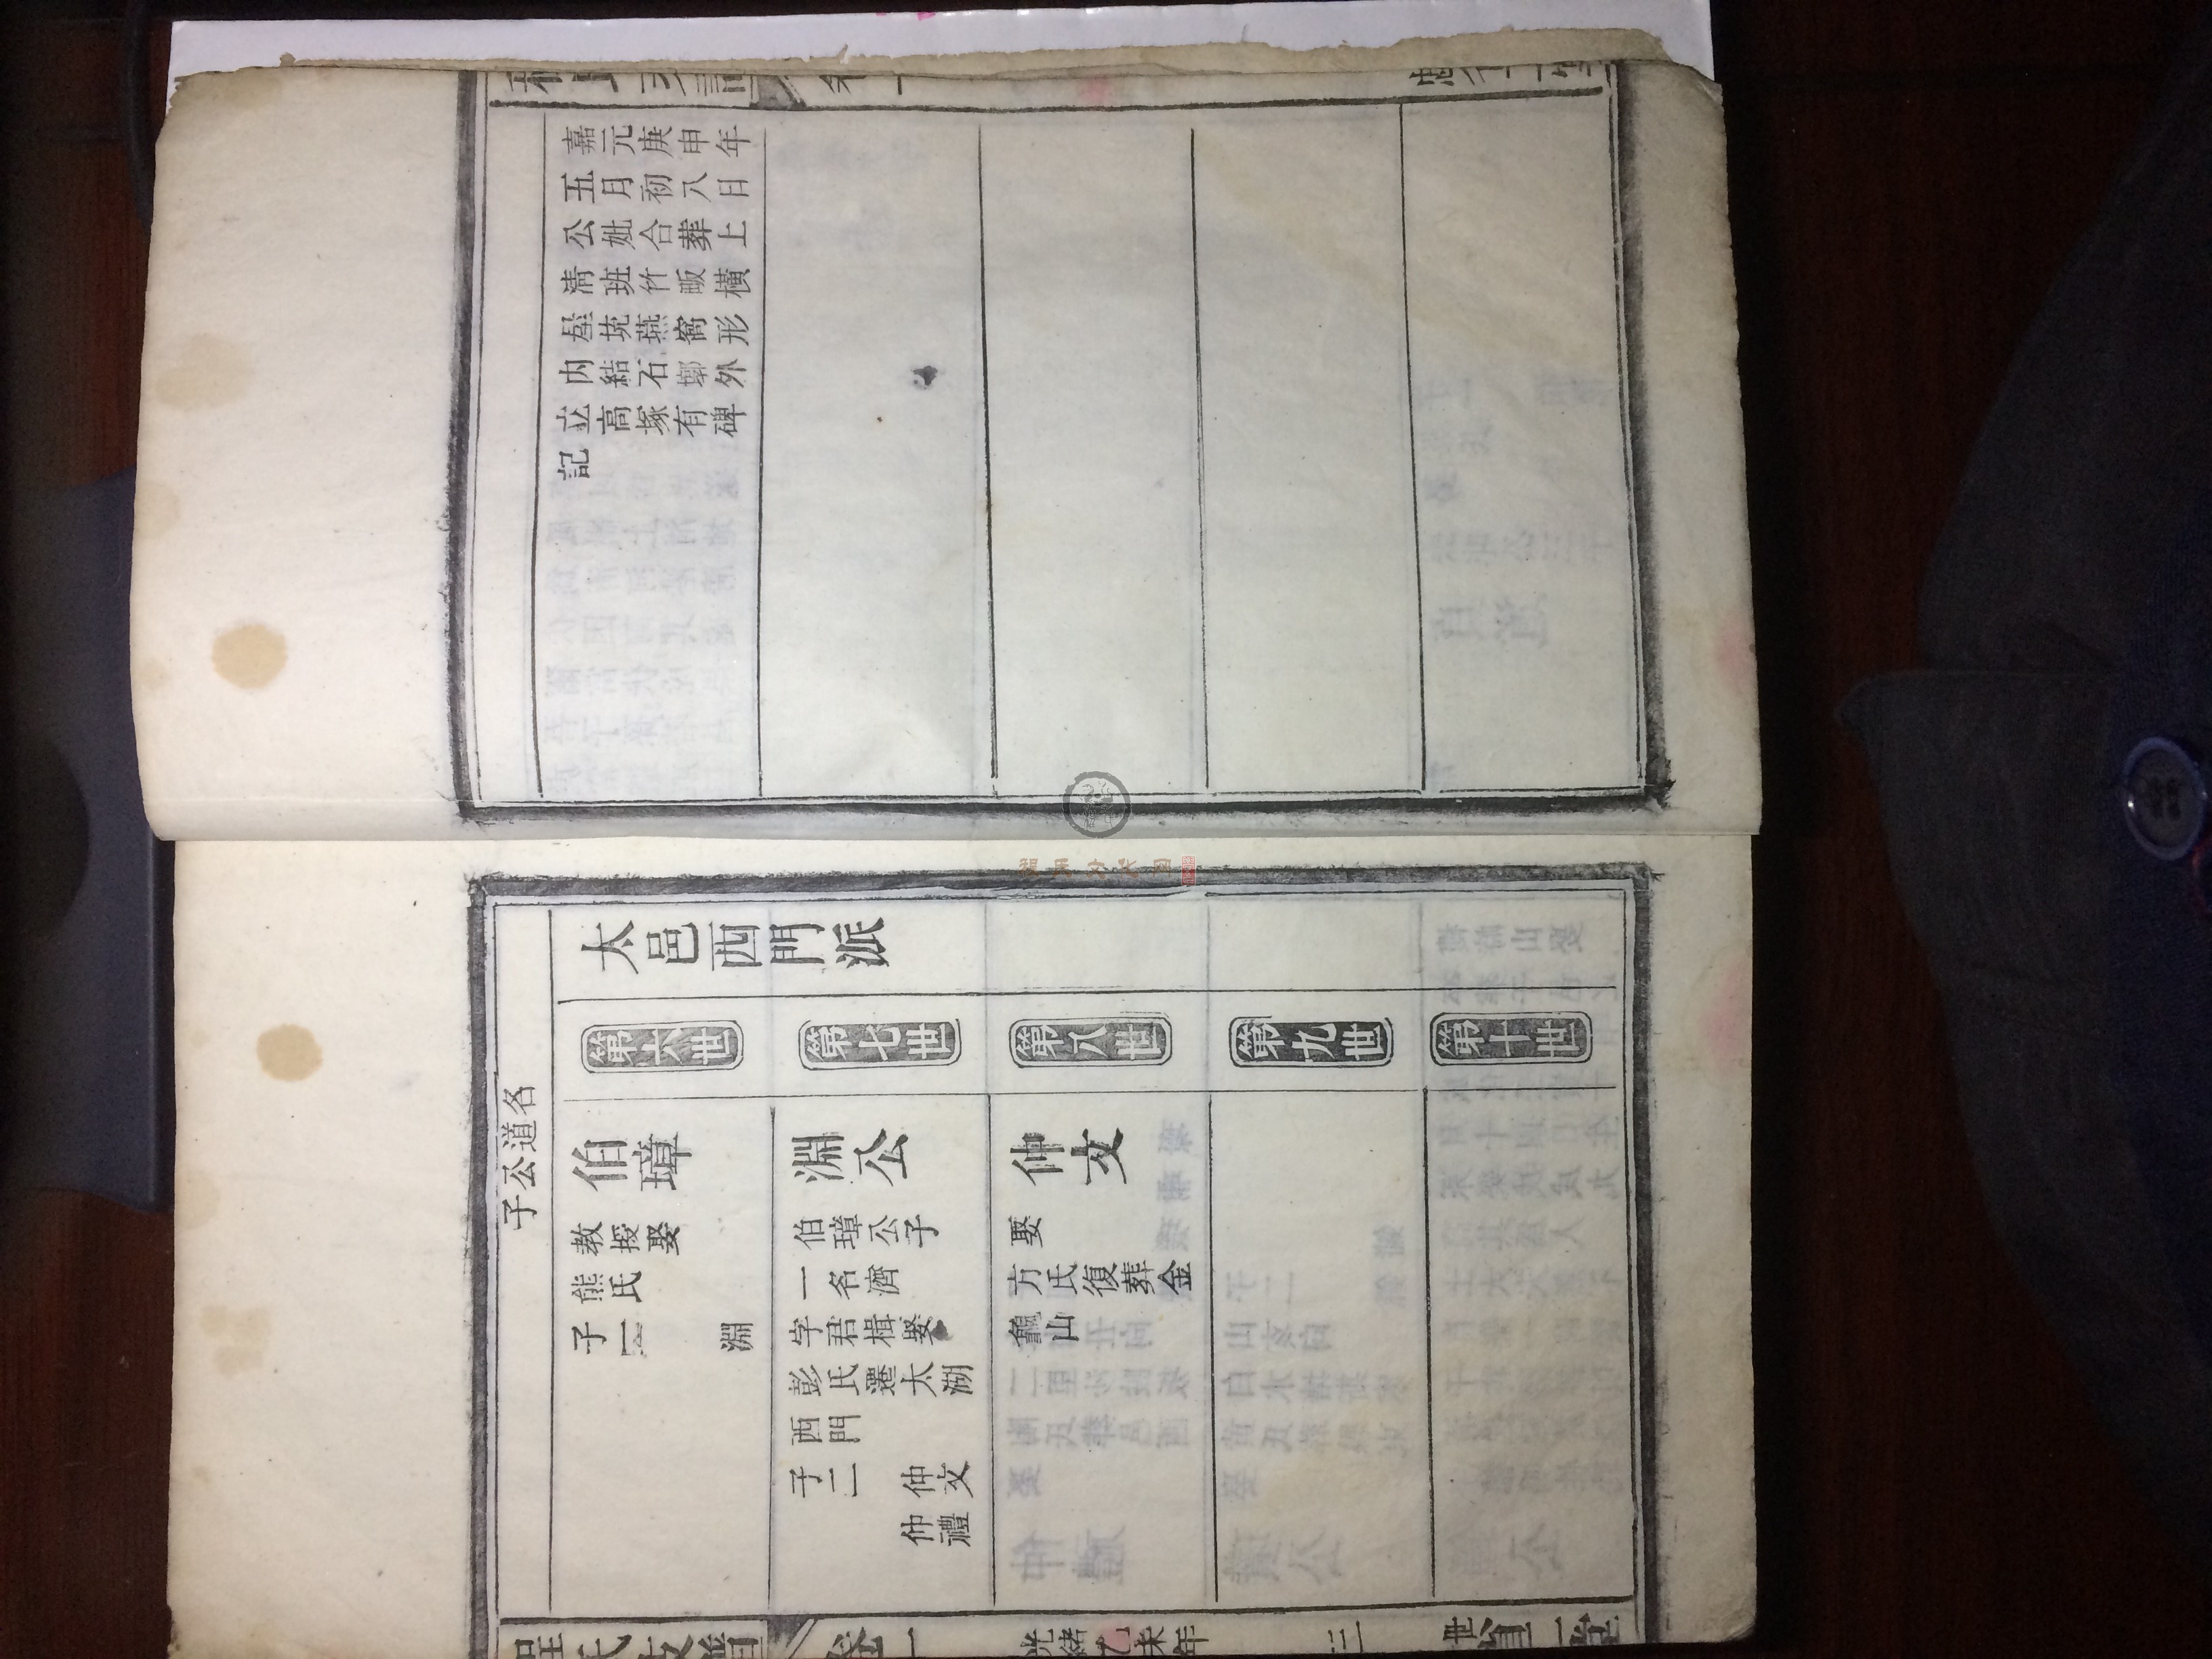 嘉元庚申年
五月初八日
公妣合葬上
清班竹畈橫
塋燕窩形
内結石墎外
立高塚有碑
記
太邑西門派
第六世
第七世
第八世
第九世
第十世
名道公子
伯璋
教授娶
熊氏
子一 淵
淵公
伯璋公子
一名濟
字君楫娶
彭氏遷太湖
西門
子二 仲文
仲禮
仲文
娶
方氏復葬金
龜山
程氏支譜 卷一 光緒乙未年 三